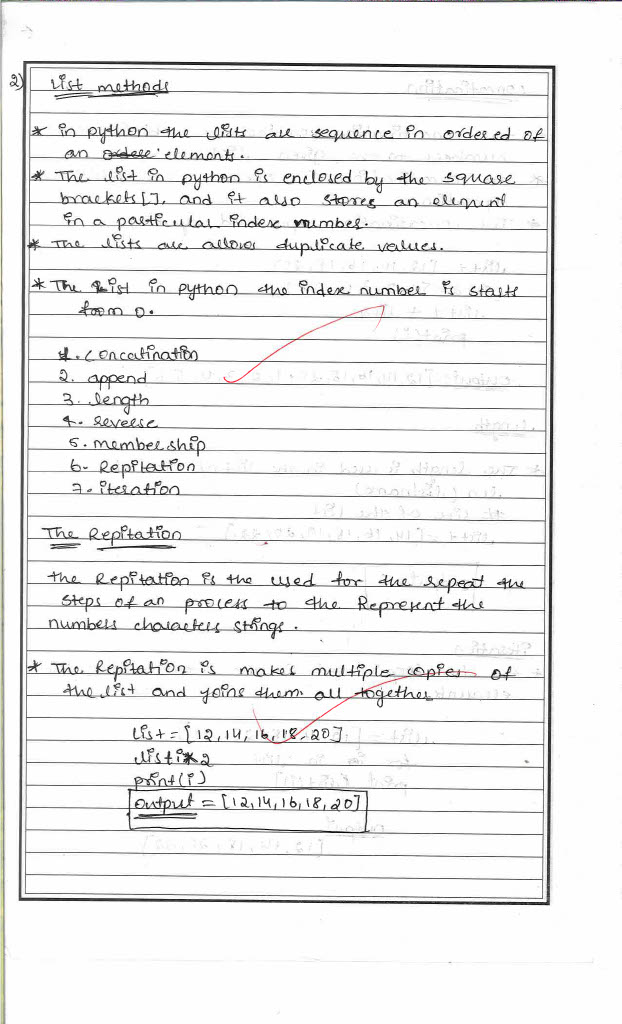 2) List methods
* in python the lists are sequence in ordered of
an elements.
* The list in python is enclosed by the square
brackets [], and it also stores an element
in a particular index number.
* The lists are allows duplicate values.
* The List in python the index number is starts
from 0.
1. Concatination
2. append
3. length
4. reverse
5. membership
6- Repitation
7- iteration
The Repitation
the Repitation is the used for the repeat the
steps of an process to the Represent the
numbers characters strings.
* The Repitation is makes multiple copies of
the list and joins them all together
list = [12, 14, 16, 18, 20]
listi*2
print(i)
output = [12, 14, 16, 18, 20]